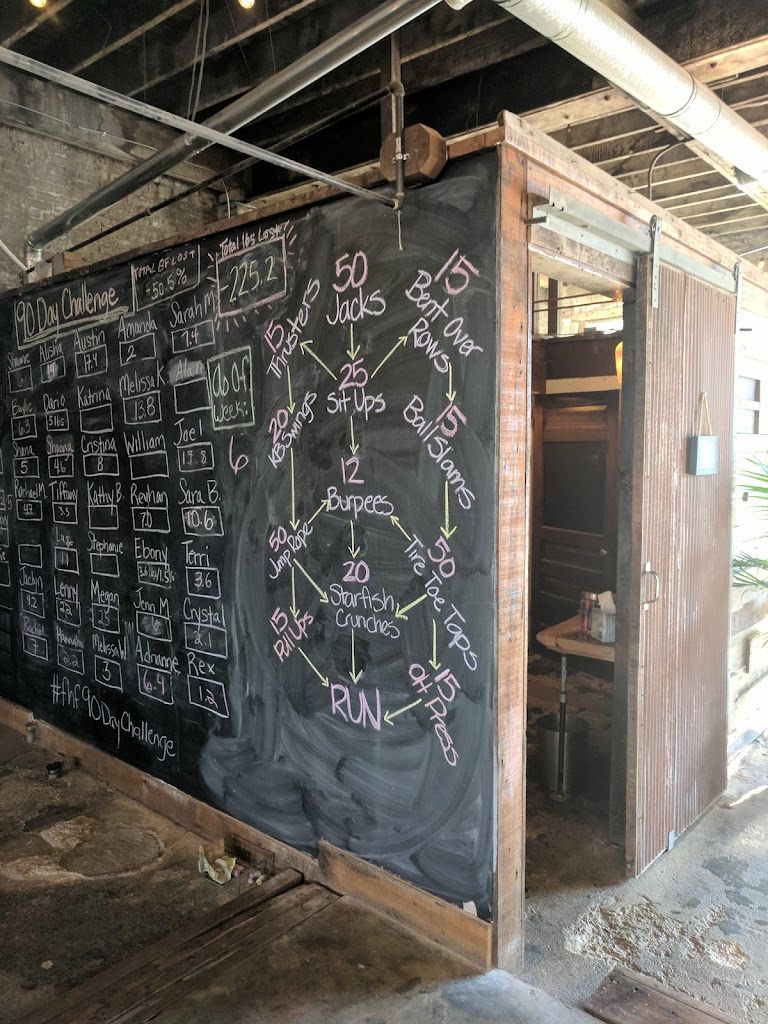 90 Day Challenge
TOTAL BF LOST
-50.5%
Total lbs Lost
-225.2
Shawne
Alisha
14
Austin
17.4
Amanda
2
Sarah M.
7.4
Baylie
6.3
Dario
5 lbs
Katrina
Melissa K.
13.8
Alan
Shana
5
Shawna
4.6
Cristina
8
William
Joel
13.8
Rachael M.
Tiffany
3.5
Kathy B.
Reyhan
7.0
Sara B.
10.6
Stephanie
Ebony
Terri
3.6
Jaclyn
4.2
Lenny
22
Megan
2.5
Jenn M.
Crystal
2.1
Rachel
7
Hannah
2.2
Melissa W.
3
Adrianne
6.4
Rex
1.2
#fnf90DayChallenge
Week:
6
50
Jacks
15
Thrusters
15
Bent Over
Rows
25
Sit Ups
20
KB Swings
15
Ball Slams
12
Burpees
50
Jump Rope
50
Tire Toe Taps
20
Starfish
Crunches
15
Pull Ups
15
OH Press
RUN